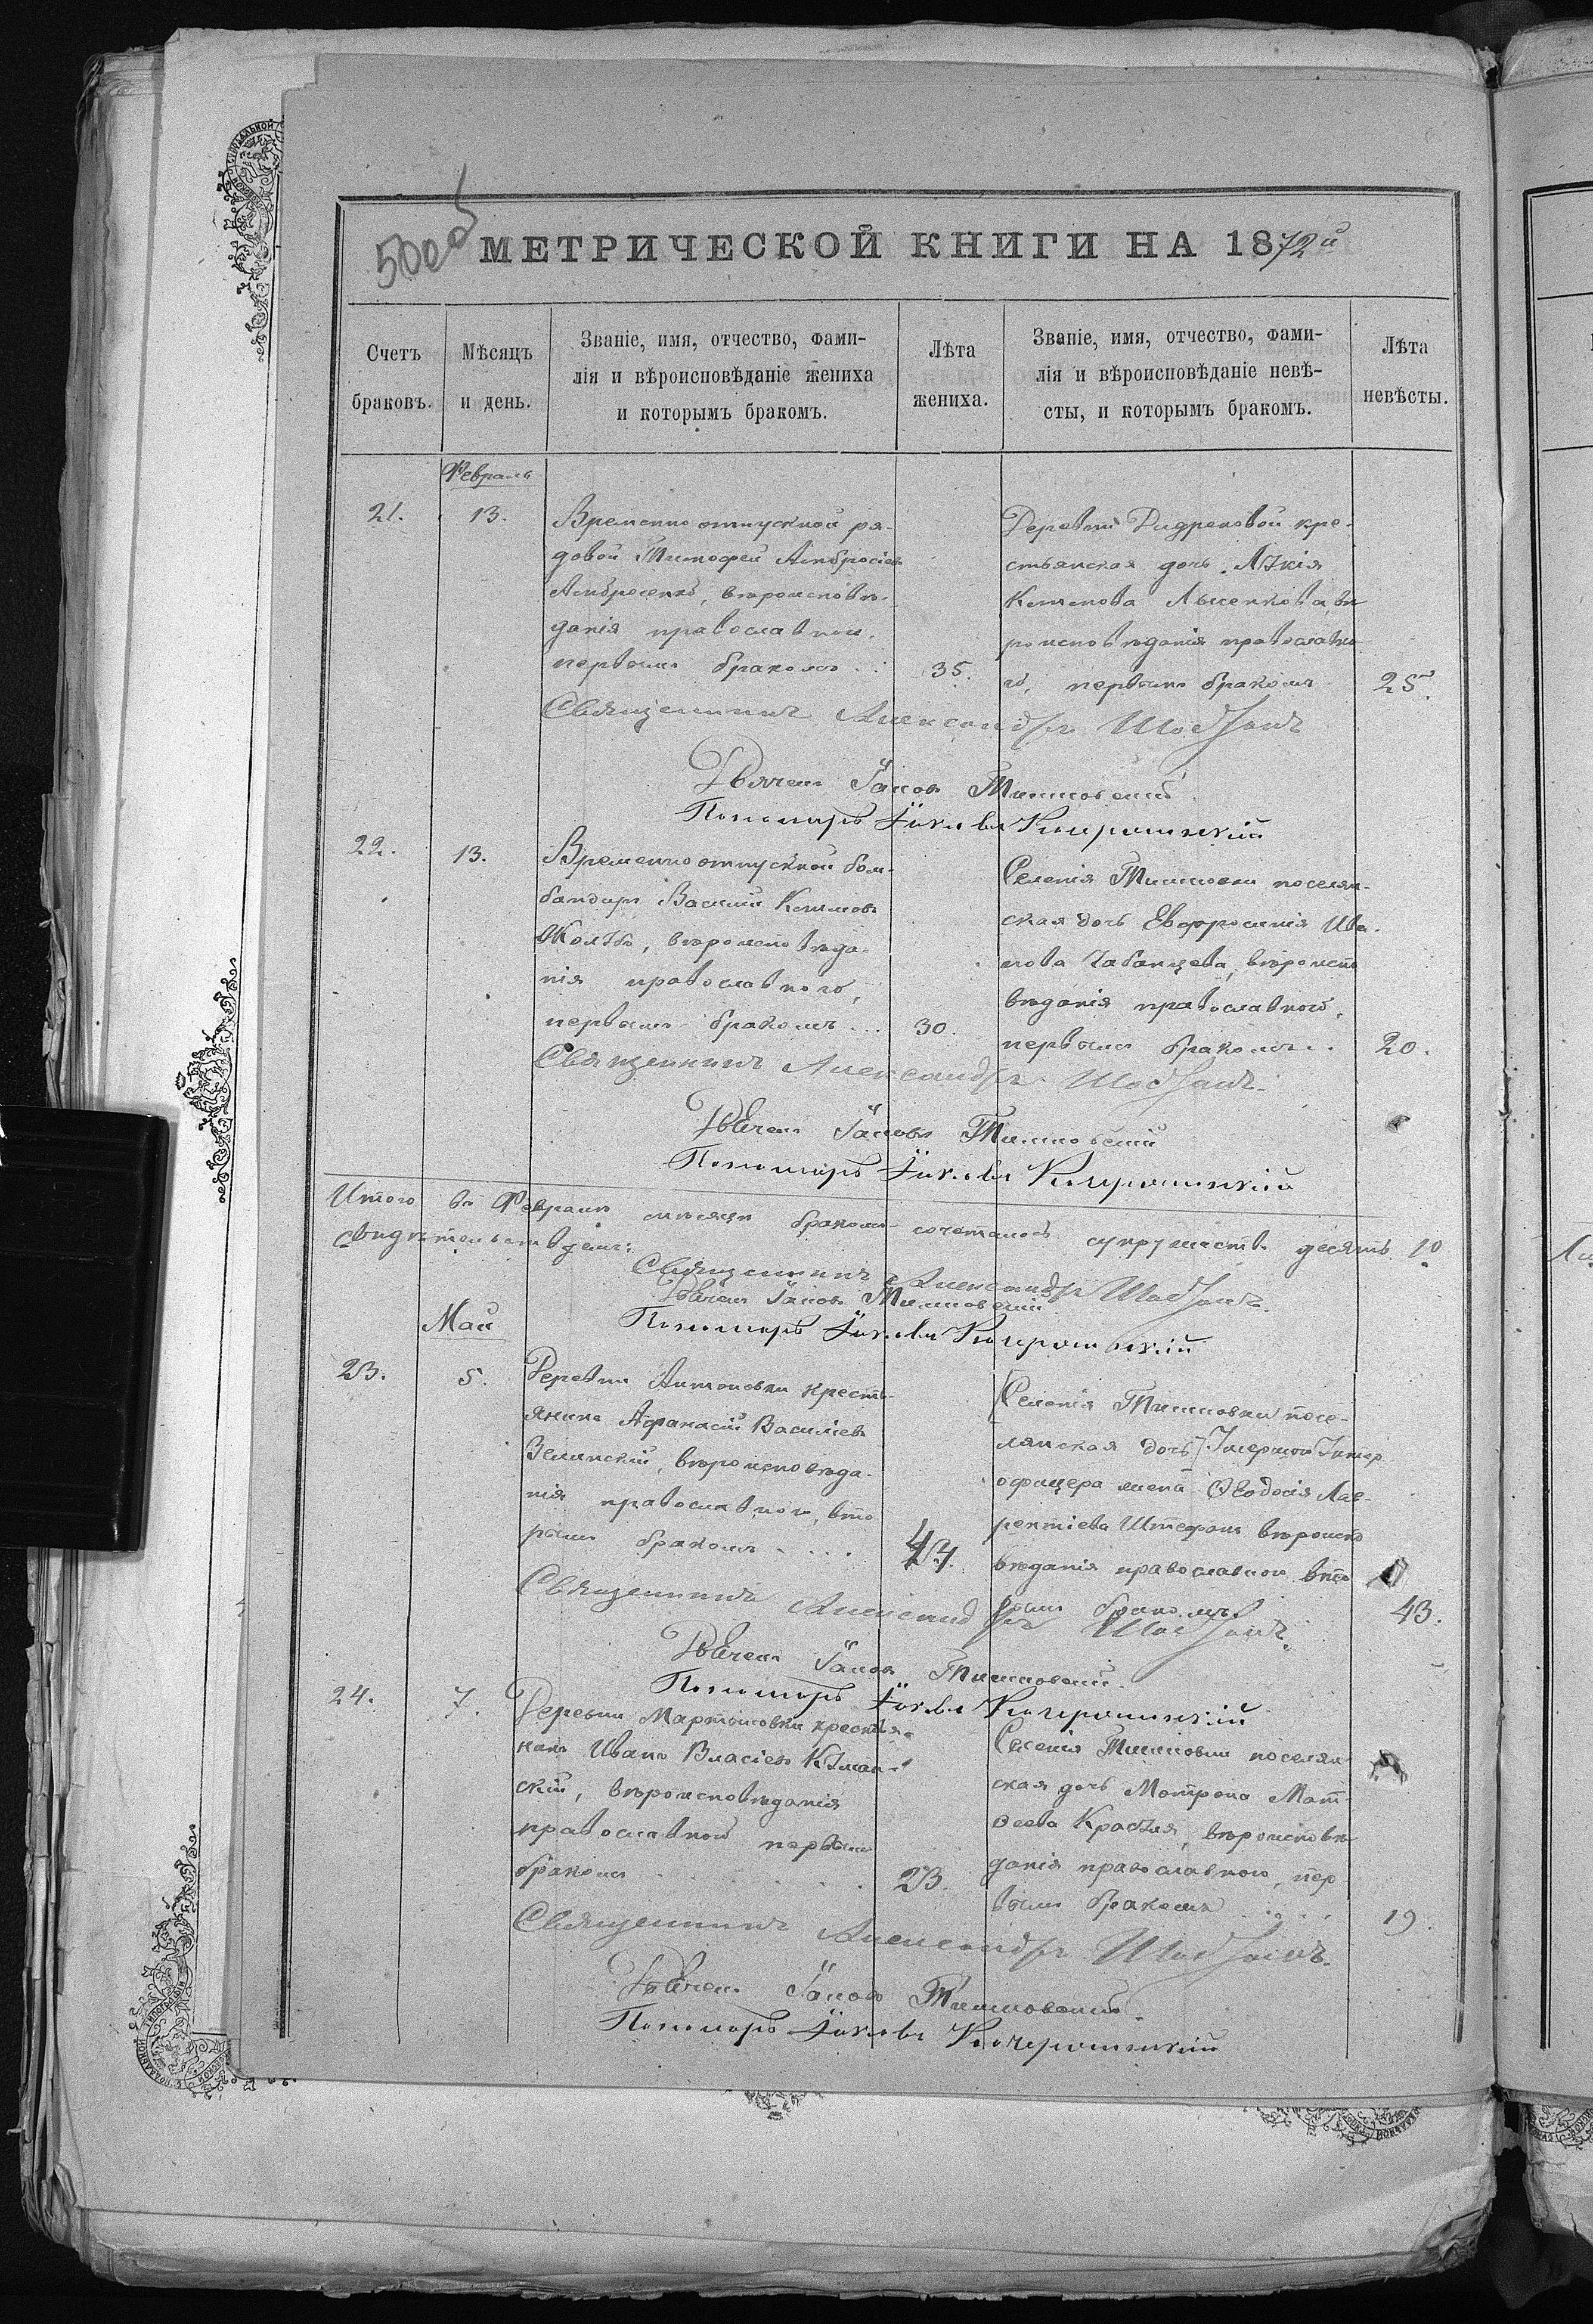 500об
МЕТРИЧЕСКОЙ КНИГИ НА 1872й
Счетъ браковъ.
Мѣсяцъ и день.
Званіе, имя, отчество, фами-
лія и вѣроисповѣданіе жениха
и которымъ бракомъ.
Лѣта жениха.
Званіе, имя, отчество, фами-
лія и вѣроисповѣданіе невѣ-
сты, и которымъ бракомъ.
Лѣта невѣсты.
Февраль
21.
13.
Временно отпускной ря-
довой Тимофей Амбросіевъ
Амбросенко, вѣроисповѣ-
данія православнаго,
первымъ бракомъ
35.
Деревни кре-
стьянская дочь
Лысенкова, вѣ
роисповѣданія православна
го, первымъ бракомъ
25.
Священникъ Александръ
Дьячекъ Іаковъ Тимковскій
Пономарь
22.
13.
Временно отпускной бом-
бандиръ Василій
вѣроисповѣда
нія православнаго,
первымъ бракомъ ...
30.
Селенія Тишковки поселян-
ская дочь Евфросинія Ива-
нова Чабанцева, вѣроиспо
вѣданія православнаго,
первымъ бракомъ ..
20.
Священникъ Александръ
Дьячекъ Іаковъ Тимковскій
Пономарь
Итого въ Февралѣ мѣсяцѣ бракомъ сочеталось супружествъ десять 10
свидѣтельствуемъ:
Священникъ Александръ
Дьячекъ Іаковъ Тимковскій
Пономарь
Май
23.
5.
Деревни Антоновки кресть-
янинъ Афанасій Василіевъ
Зелинскій, вѣроисповѣда-
нія православнаго, вто
рымъ бракомъ ....
47.
Селенія Тишковки посе-
лянская дочь Умершаго Унтер
офицера жена Ѳеодосія Лав-
рентіева Штефанъ вѣроиспо
вѣданія православнаго вто
рымъ бракомъ.
43.
Священникъ Александръ
Дьячекъ Іаковъ Тимковскій
Пономарь
24.
7.
Деревни Мартыновки крестья-
нинъ Иванъ Власіевъ
скій, вѣроисповѣданія
православнаго первымъ
бракомъ
23.
Селенія Тишковки поселян
ская дочь Мотрона Мат
ѳеева вѣроисповѣ
данія православнаго, пер
вымъ бракомъ ....
19.
Священникъ Александръ
Дьячекъ Іаковъ Тимковскій
Пономарь